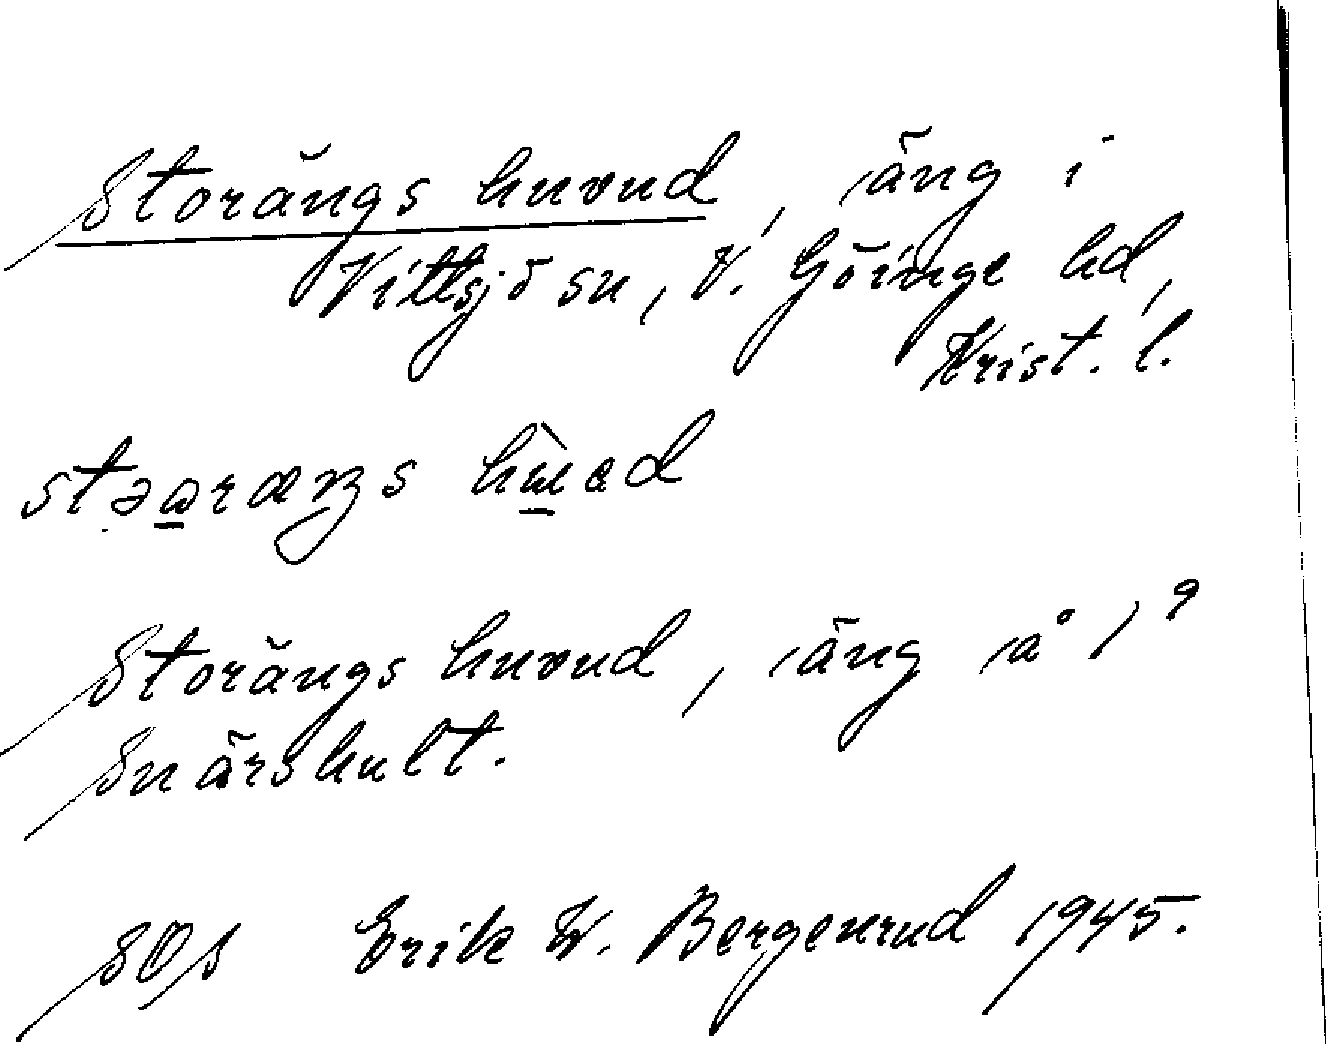 Storängs huvud, äng i
Vittsjö sn, V. Göinge hd,
Krist. l.
Storängs huvud, äng å 1⁹
Snärshult.
SOS Erik W. Bergenrud 1945.